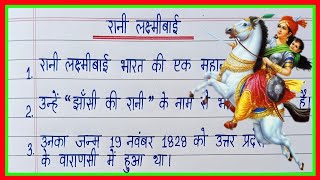 रानी लक्ष्मीबाई
1. रानी लक्ष्मीबाई भारत की एक
2. उन्हें "झाँसी की रानी" के नाम से है।
3. उनका जन्म 19 नवंबर 1828 को उत्तर
के वाराणसी में हुआ था।